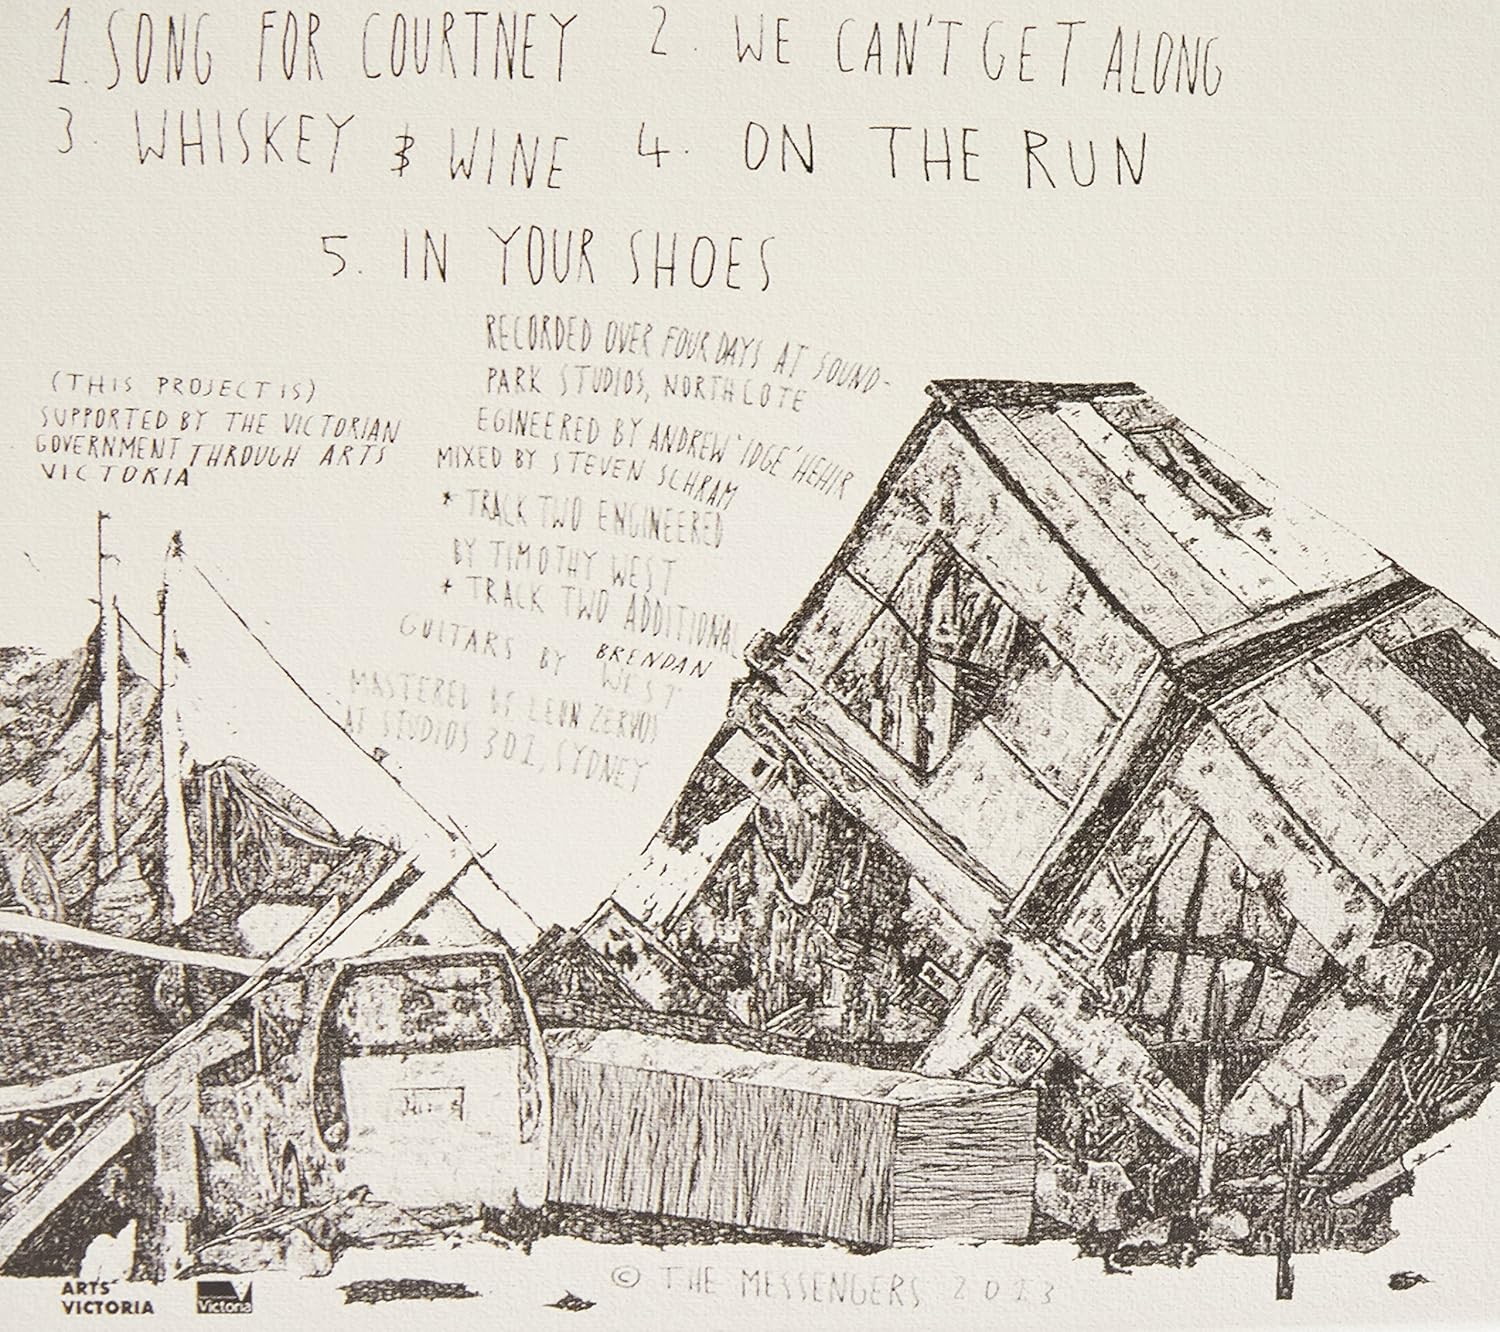 1. SONG FOR COURTNEY 2. WE CAN'T GET ALONG
3. WHISKEY & WINE 4. ON THE RUN
5. IN YOUR SHOES
RECORDED OVER FOUR DAYS AT SOUND-
PARK STUDIOS, NORTHCOTE
EGINEERED BY ANDREW 'IDGE' HEHIR
MIXED BY STEVEN SCHRAM
* TRACK TWO ENGINEERED
BY TIMOTHY WEST
* TRACK TWO ADDITIONAL
GUITARS BY BRENDAN
WEST
MASTERED BY LEON ZERVOS
AT STUDIOS 301, SYDNEY
(THIS PROJECT IS)
SUPPORTED BY THE VICTORIAN
GOVERNMENT THROUGH ARTS
VICTORIA
ARTS
VICTORIA
Victoria
© THE MESSENGERS 2013